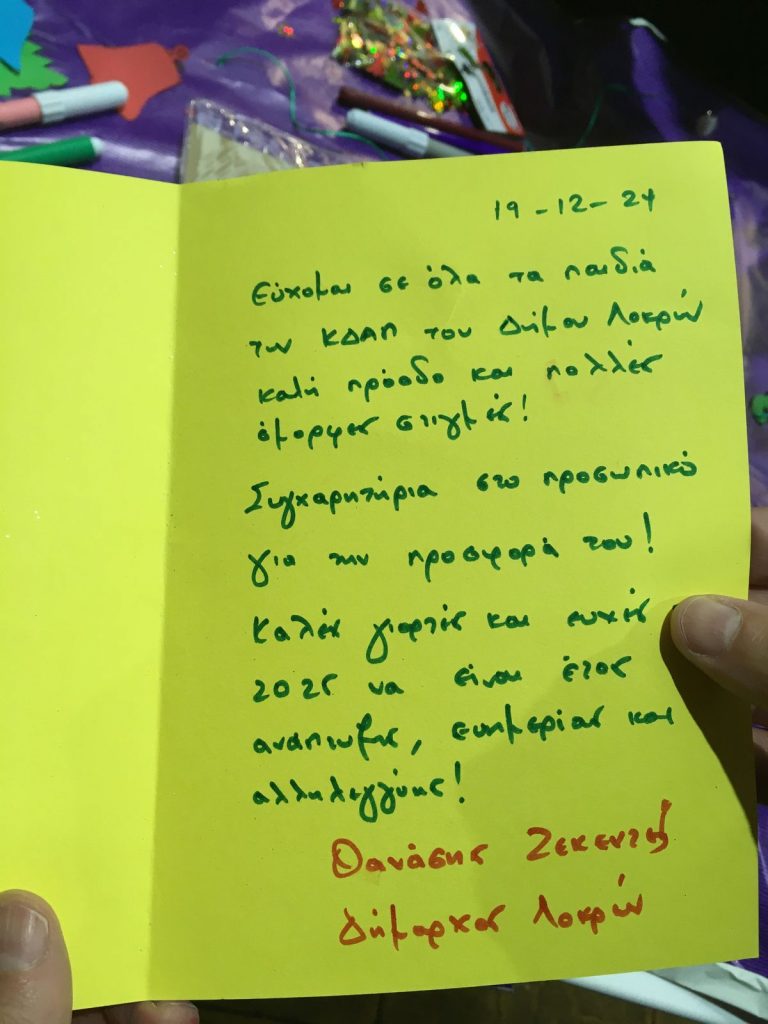 19-12-24
Εύχομαι σε όλα τα παιδιά
των ΚΔΑΠ του Δήμου Λοκρών
καλή πρόοδο και πολλές
όμορφες στιγμές!
Συγχαρητήρια στο προσωπικό
για την προσφορά του!
Καλές γιορτές και ευχές
2025 να είναι έτος
ανάπτυξης, ευημερίας και
αλληλεγγύης!
Θανάσης Ζεκεντές
Δήμαρχος Λοκρών